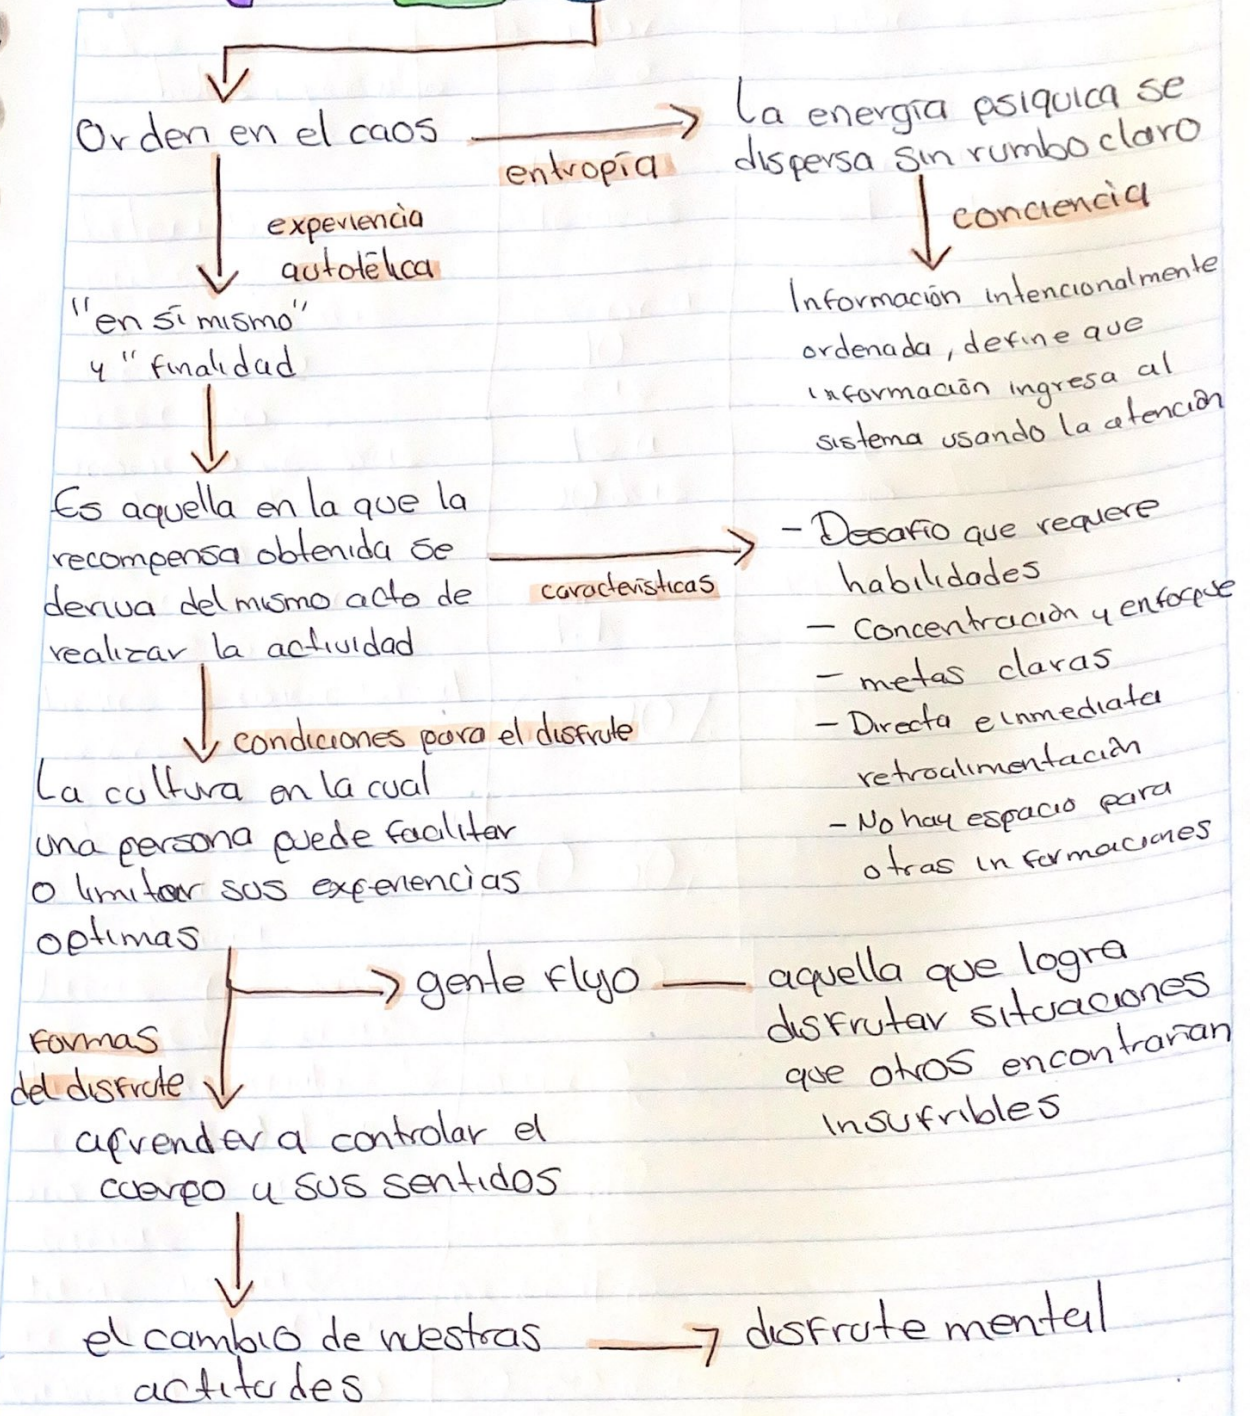 Orden en el caos
entropía
La energía psiquica se
dispersa sin rumbo claro
conciencia
Información intencionalmente
ordenada, define que
información ingresa al
sistema usando la atención
experiencia
autotélica
"en sí mismo"
y "finalidad
Es aquella en la que la
recompensa obtenida se
deriva del mismo acto de
realizar la actividad
características
- Desafío que requere
habilidades
- Concentración y enfoque
- metas claras
- Directa e inmediata
retroalimentación
- No hay espacio para
otras informaciones
condiciones para el disfrute
La cultura en la cual
una persona puede facilitar
o limitar sus experiencias
optimas
gente flujo — aquella que logra
disfrutar situaciones
que otros encontrarían
insufribles
Formas
del disfrute
aprender a controlar el
cuerpo y sus sentidos
el cambio de nuestras
actitudes
disfrute mental